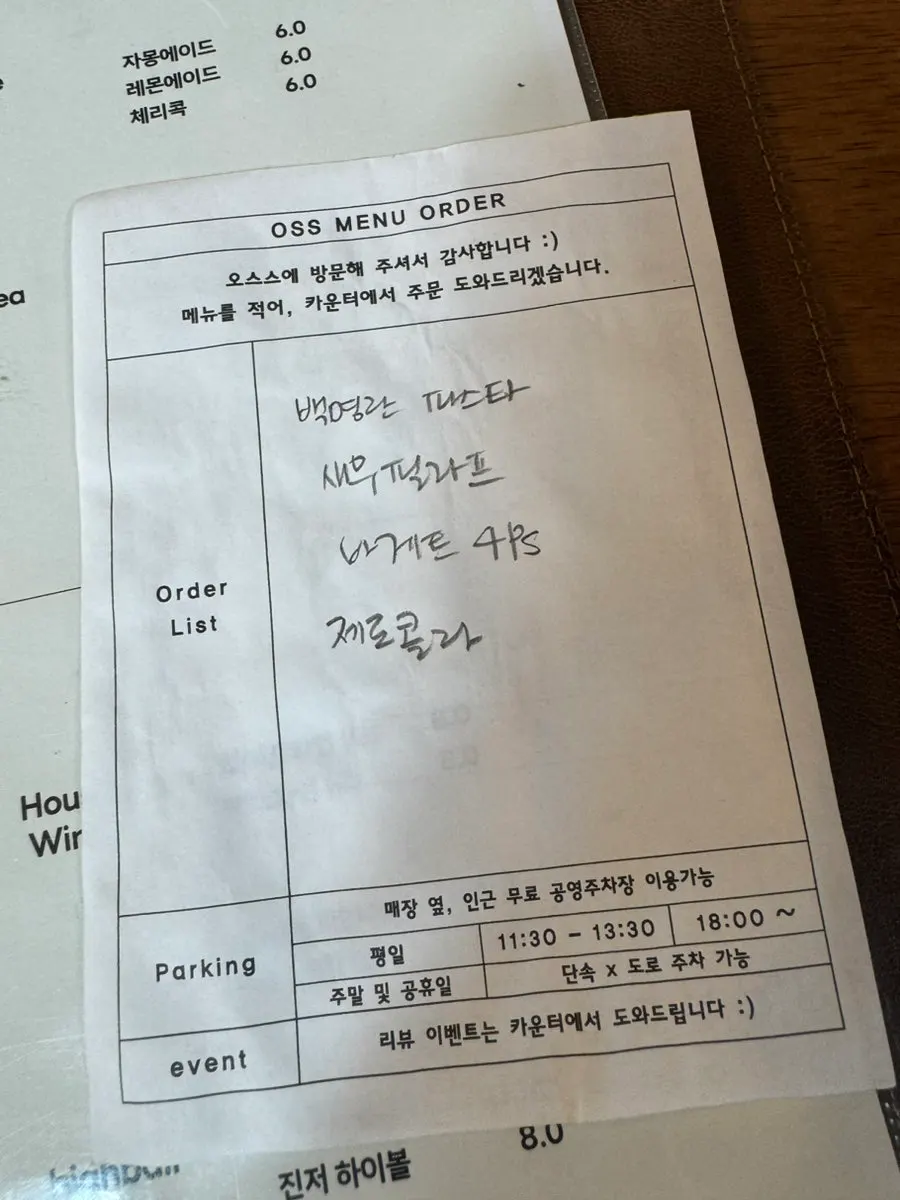 자몽에이드 6.0
레몬에이드 6.0
체리콕 6.0
ea
OSS MENU ORDER
오스스에 방문해 주셔서 감사합니다 :)
메뉴를 적어, 카운터에서 주문 도와드리겠습니다.
Order
List
백명란 파스타
새우필라프
바게트 4ps
제로콜라
Hou
Win
Parking
매장 옆, 인근 무료 공영주차장 이용가능
평일 11:30 - 13:30 18:00 ~
주말 및 공휴일 단속 x 도로 주차 가능
event
리뷰 이벤트는 카운터에서 도와드립니다 :)
진저 하이볼 8.0